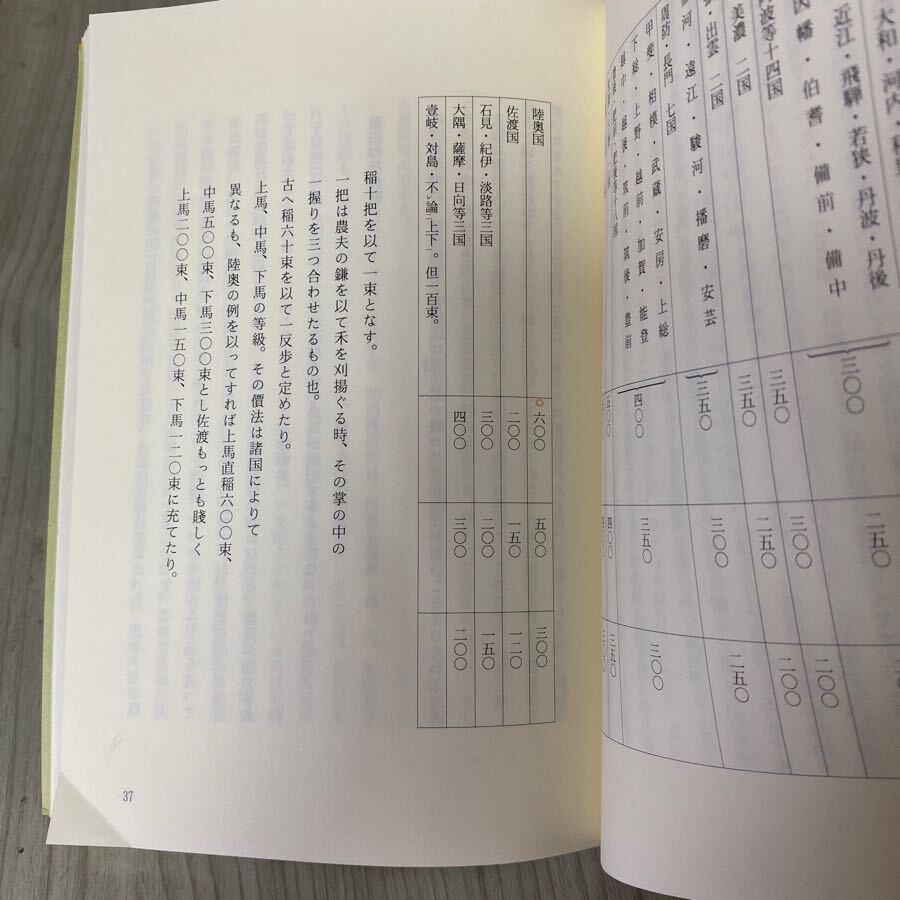 大和・河内・
近江・飛騨・若狭・丹波・丹後
三〇〇
二五〇
因幡・伯耆・備前・備中
三〇〇
二〇〇
丹波等十四国
三五〇
二五〇
二〇〇
美濃 二国
三五〇
・出雲 二国
三五〇
三〇〇
二五〇
河・遠江・駿河・播磨・安芸
周防・長門 七国
甲斐・相模・武蔵・安房・上総
下総・上野・越前・加賀・能登
越中・越後・筑前・筑後・豊前
四〇〇
三五〇
三〇〇
五〇〇
四〇〇
三五〇
陸奥国
六〇〇
五〇〇
三〇〇
佐渡国
二〇〇
一五〇
一二〇
石見・紀伊・淡路等三国
三〇〇
二〇〇
一五〇
大隅・薩摩・日向等三国
四〇〇
三〇〇
二〇〇
壹岐・対島・不レ論二上下一。但一百束。
稲十把を以て一束となす。
一把は農夫の鎌を以て禾を刈揚ぐる時、その掌の中の
一握りを三つ合わせたるもの也。
古へ稲六十束を以て一反歩と定めたり。
上馬、中馬、下馬の等級。その價法は諸国によりて
異なるも、陸奥の例を以ってすれば上馬直稲六〇〇束、
中馬五〇〇束、下馬三〇〇束とし佐渡もっとも賤しく
上馬二〇〇束、中馬一五〇束、下馬一二〇束に充てたり。
37